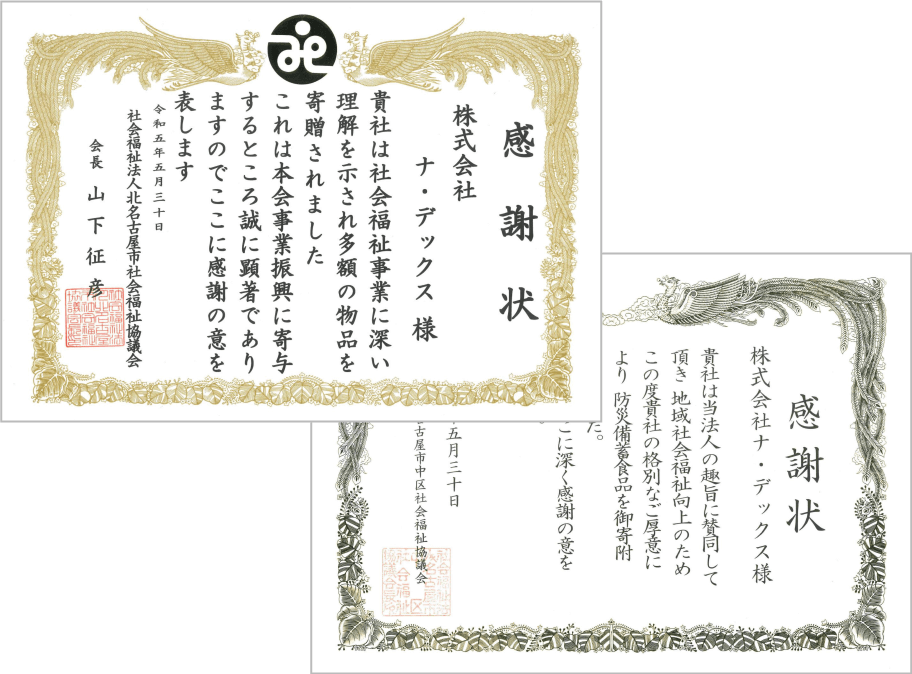 感謝状
株式会社
ナ・デックス 様
貴社は社会福祉事業に深い
理解を示され多額の物品を
寄贈されました
これは本会事業振興に寄与
するところ誠に顕著であり
ますのでここに感謝の意を
表します
令和五年五月三十日
社会福祉法人北名古屋市社会福祉協議会
会長 山下征彦
感謝状
株式会社ナ・デックス 様
貴社は当法人の趣旨に賛同して
頂き 地域社会福祉向上のため
この度貴社の格別なご厚意に
より 防災備蓄食品を御寄附
た。
こに深く感謝の意を
。
年五月三十日
古屋市中区社会福祉協議会